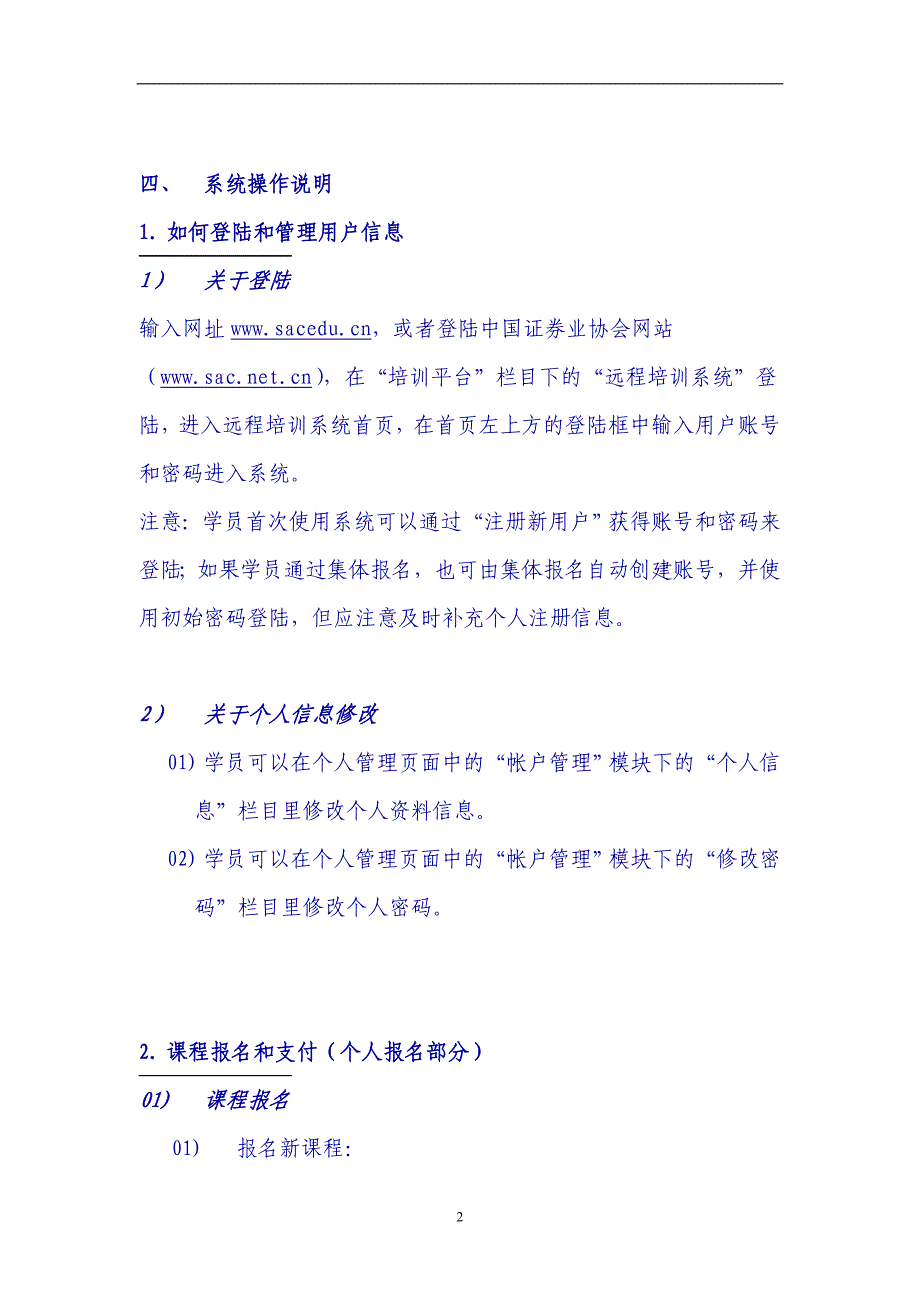 四、 系统操作说明
1. 如何登陆和管理用户信息
1） 关于登陆
输入网址 www.sacedu.cn，或者登陆中国证券业协会网站
（www.sac.net.cn），在“培训平台”栏目下的“远程培训系统”登
陆，进入远程培训系统首页，在首页左上方的登陆框中输入用户账号
和密码进入系统。
注意：学员首次使用系统可以通过“注册新用户”获得账号和密码来
登陆；如果学员通过集体报名，也可由集体报名自动创建账号，并使
用初始密码登陆，但应注意及时补充个人注册信息。
2） 关于个人信息修改
01) 学员可以在个人管理页面中的“帐户管理”模块下的“个人信
息”栏目里修改个人资料信息。
02) 学员可以在个人管理页面中的“帐户管理”模块下的“修改密
码”栏目里修改个人密码。
2. 课程报名和支付（个人报名部分）
01) 课程报名
01) 报名新课程：
2